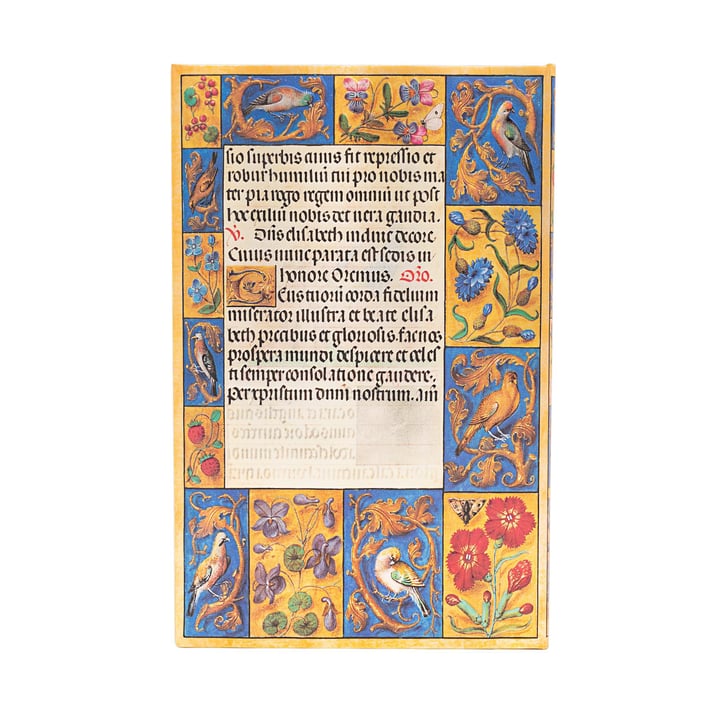 sio superbis cuius fit repressio et
robur humiliū cui pro nobis ma
ter pia rogo regem omniū ut post
hoc exiliū nobis det uera gaudia.
V. Dn̄s elisabeth induit decore
Cuius nunc parata est sedis in
honore Oremus. Orō.
Tuorū corda fidelium
miserator illustra et beate elisa
beth precibus et gloriosis. fac nos
prospera mundi despicere et celes
ti semper consolatione gaudere.
Per xpūstum dnm̄ nostrum. am̄